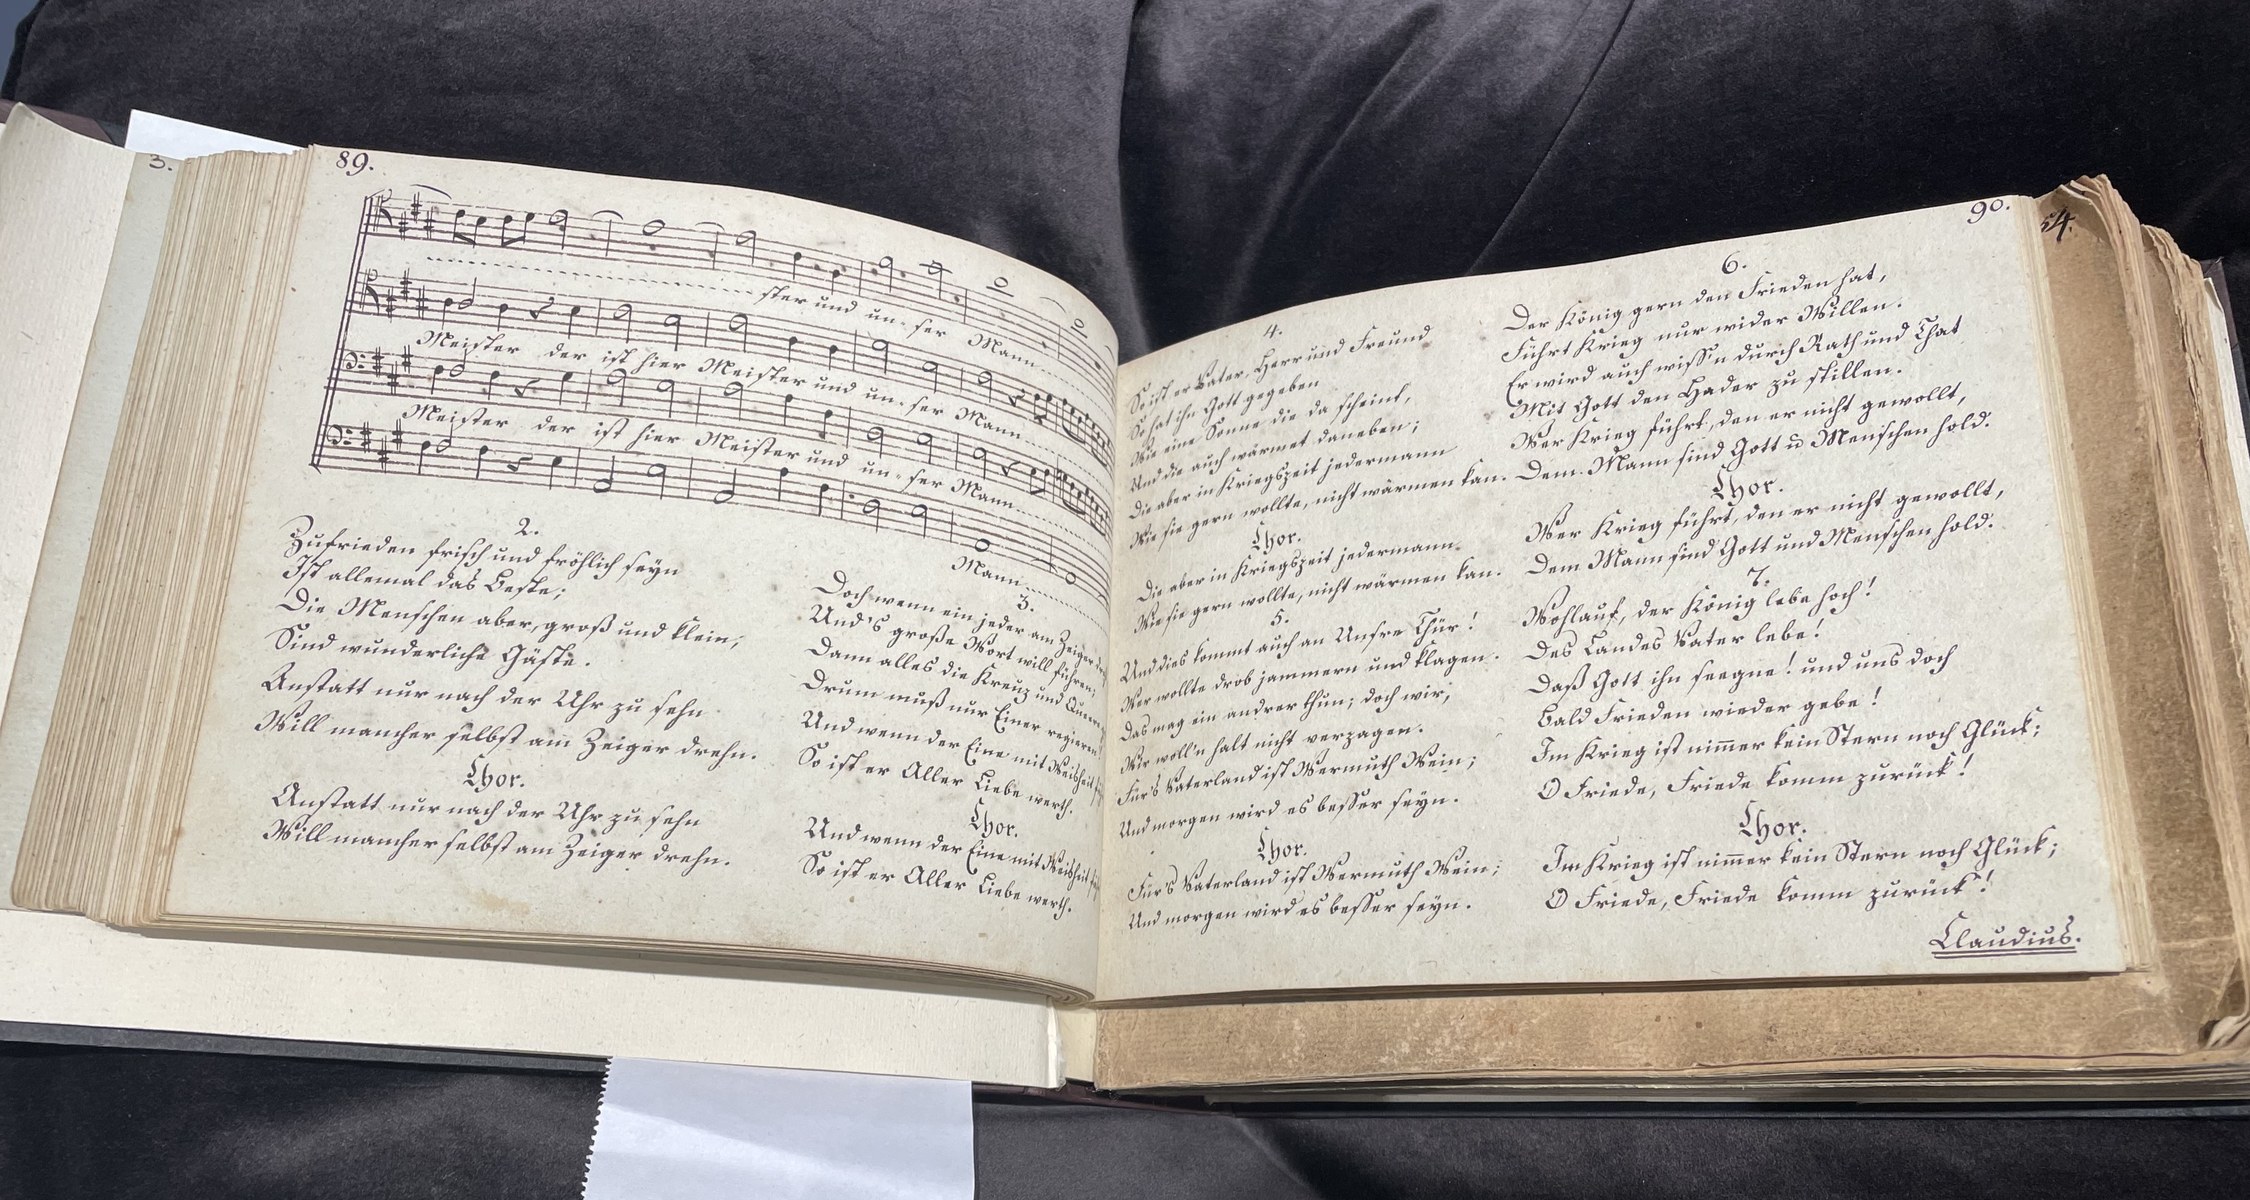 3.
89.
ster und un- ser Mann
Meister der ist hier Meister und un- ser Mann
Meister der ist hier Meister und un- ser Mann
Mann
2.
Zufrieden frisch und fröhlich seyn
Ist allemal das Beste;
Die Menschen aber, groß und klein,
Sind wunderliche Gäste.
Anstatt nur nach der Uhr zu sehn
Will mancher selbst am Zeiger drehn.
Chor.
Anstatt nur nach der Uhr zu sehn
Will mancher selbst am Zeiger drehn.
3.
Doch wenn ein jeder am Zeiger
Und's große Wort will führen;
Dann alles die Kreuz und Queer
Drum muß nur Einer regieren
Und wenn der Eine mit Weisheit
So ist er Aller Liebe werth.
Chor.
Und wenn der Eine mit Weisheit
So ist er Aller Liebe werth.
4.
So ist er Vater, Herr und Freund
So hat ihn Gott gegeben
Wie eine Sonne die da scheint,
Und die auch wärmet daneben;
Die aber in Kriegszeit jedermann
Wie sie gern wollte, nicht wärmen kan.
Chor.
Die aber in Kriegszeit jedermann
Wie sie gern wollte, nicht wärmen kan.
5.
Und dies kommt auch an Unsre Thür!
Wer wollte drob jammern und klagen.
Das mag ein andrer thun; doch wir,
Wir woll'n halt nicht verzagen.
Für's Vaterland ist Wermuth Wein;
Und morgen wird es besser seyn.
Chor.
Für's Vaterland ist Wermuth Wein;
Und morgen wird es besser seyn.
90.
54.
6.
Der König gern den Frieden hat,
Führt Krieg nur wider Willen.
Er wird auch wiss'n durch Rath und That
Mit Gott den Hader zu stillen.
Wer Krieg führt, den er nicht gewollt,
Dem Mann sind Gott u Menschen hold.
Chor.
Wer Krieg führt, den er nicht gewollt,
Dem Mann sind Gott und Menschen hold.
7.
Wohlauf, der König lebe hoch!
Des Landes Vater lebe!
Daß Gott ihn seegne! und uns doch
Bald Frieden wieder gebe!
Im Krieg ist nim̅er kein Stern noch Glück;
O Friede, Friede komm zurück!
Chor.
Im Krieg ist nim̅er kein Stern noch Glück;
O Friede, Friede komm zurück!
Claudius.